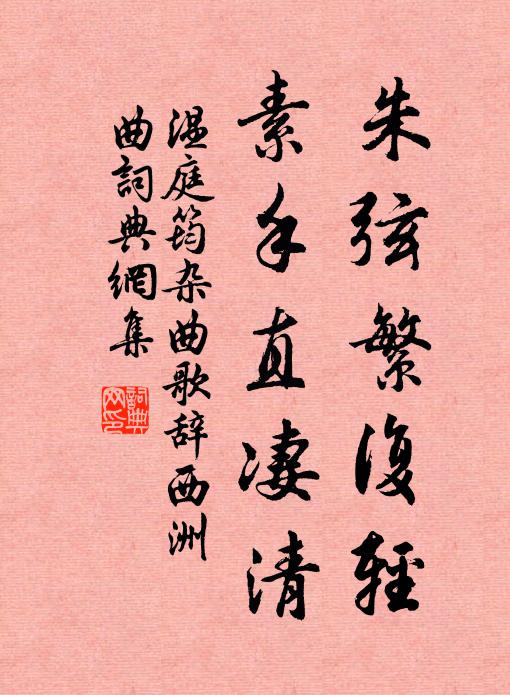 朱弦繁復輕
素手直凄清
温庭筠杂曲歌辞西洲
曲詞典網集
詞典
网印